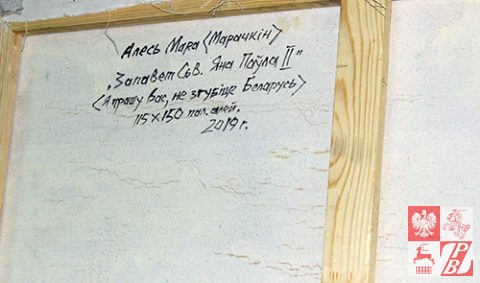 Алесь Мара (Марачкін)
„Запавет Сьв. Яна Паўла II”
(Я прашу вас, не згубіце Беларусь)
115×150 пал. алей.
2019 г.
ZPB